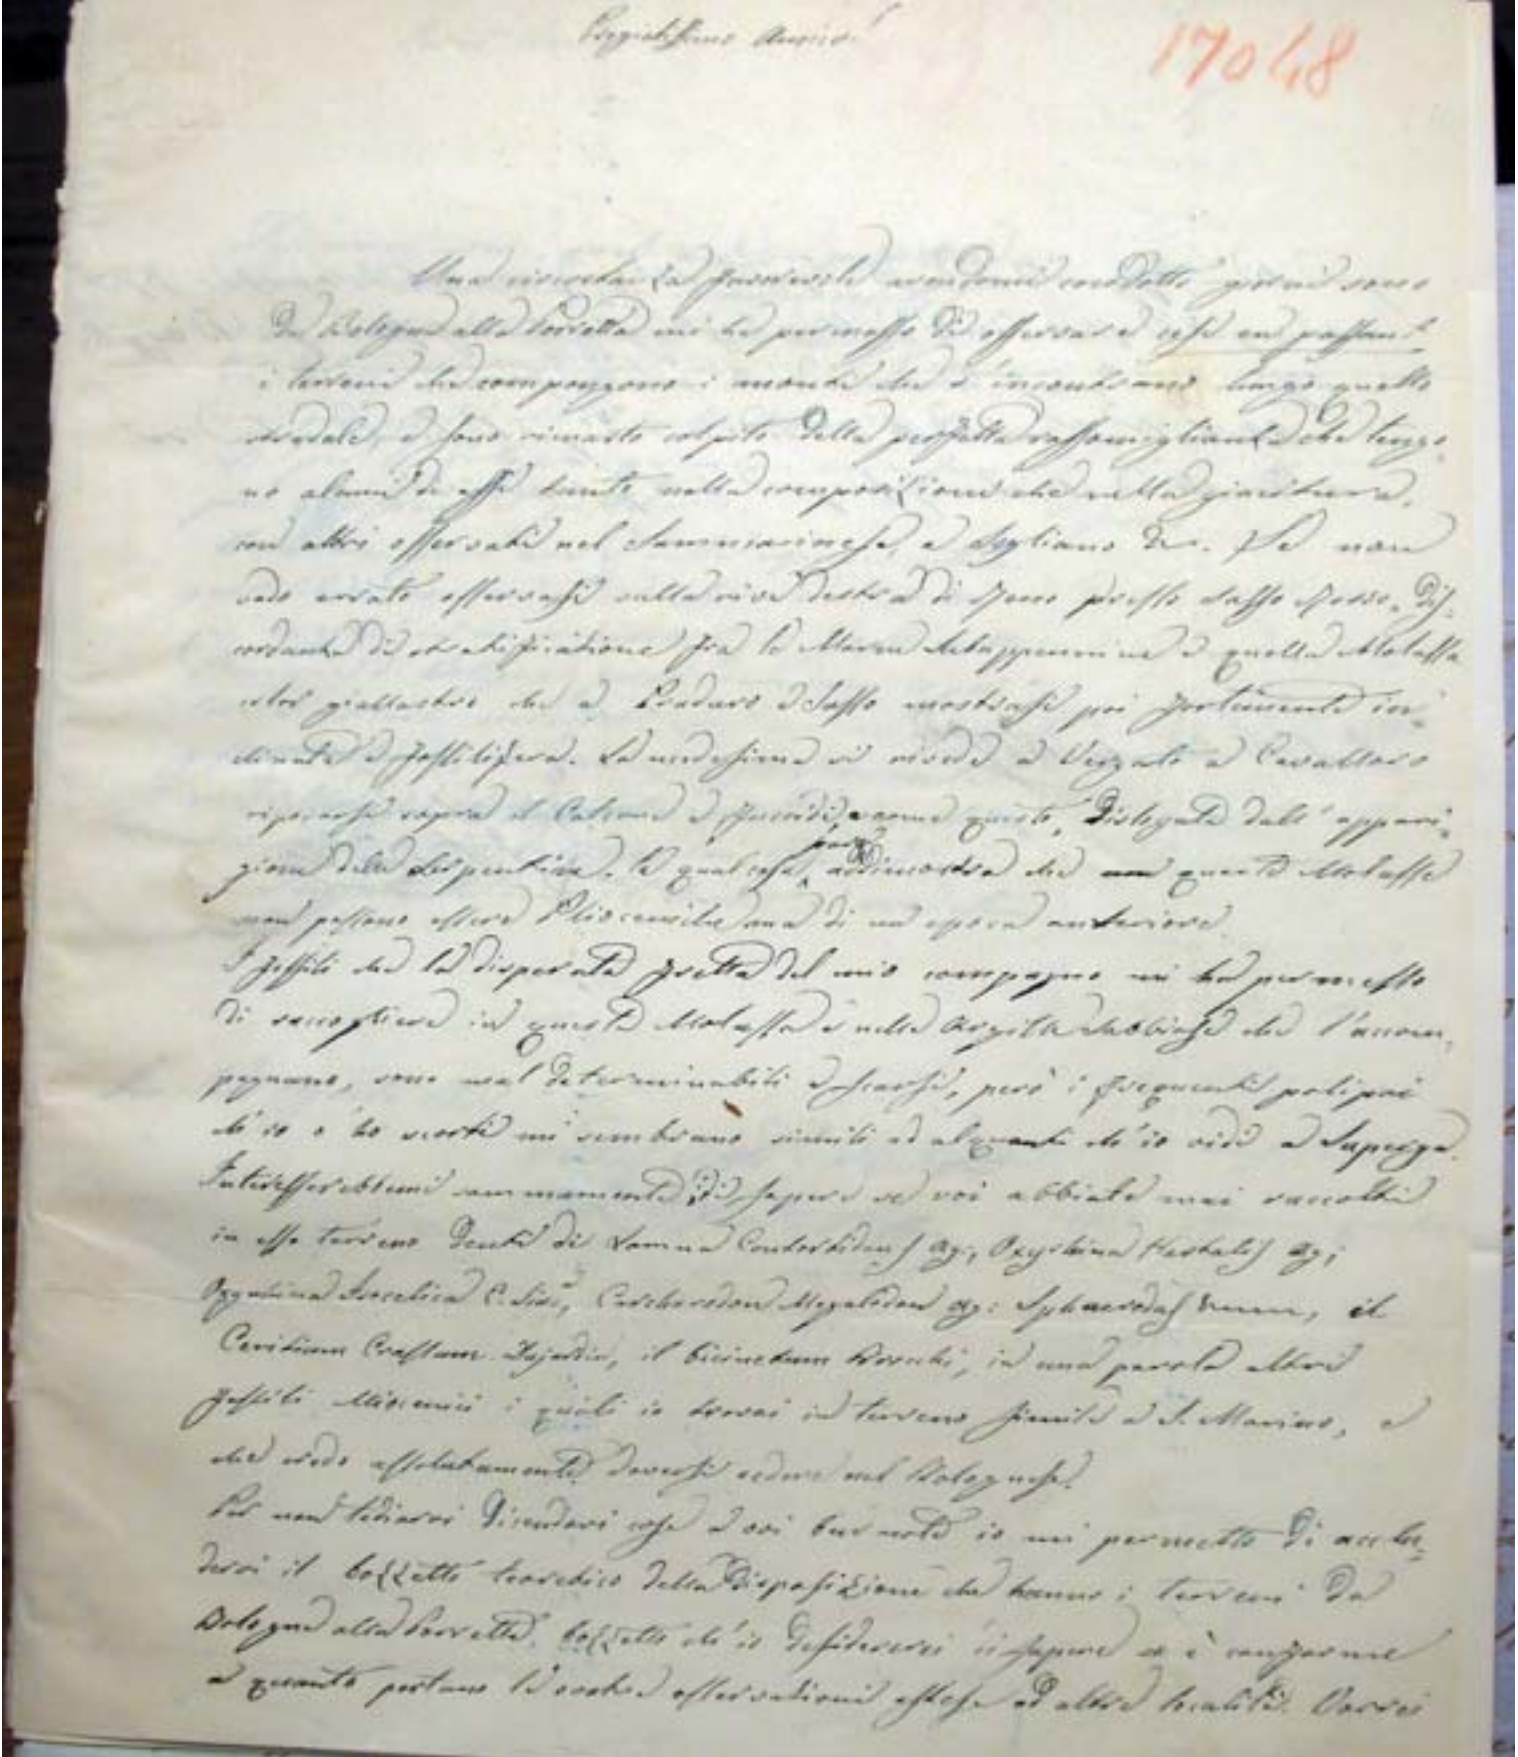 Pregiatissimo Amico
17048
Una circostanza favorevole avendomi condotto giorni sono
da Bologna alla Porretta mi ha permesso di osservare così en passant
i terreni che compongono i monti che s'incontrano lungo quello
stradale, e sono rimasto colpito della perfetta rassomiglianza che tengo-
no alcuni di essi tanto nella composizione che nella giacitura,
con altri osservati nel Sammarinese, a Sogliano &c. Se non
vado errato osservasi sulla riva destra di Reno presso Sasso Rosso, dis-
cordanza di stratificazione fra la Marna subappennina e quella Molassa
color giallastro che a Pradure e Sasso mostrasi poi fortemente in-
clinata e fossilifera. La medesima si rivede a Vergato a Cavallaro
riposarsi sopra il Calcare a Fucoidi e come questo, dislogata dall'appari-
zione della Serpentina. la qual cosa parmi addimostra che queste Molasse
non possono essere Plioceniche ma di un'epoca anteriore.
I fossili che la disperata fretta del mio compagno mi ha permesso
di raccogliere in questa Molassa e nelle Argille Sabbiose che l'accom-
pagnano, sono mal determinabili e scarsi, però i frequenti polipai
ch'io v'ho scorti mi sembrano simili ad alquanti ch'io vidi a Superga.
Interesserebbemi sommamente di sapere se voi abbiate mai raccolti
in esso terreno denti di Lamna Contortidens Ag:, Oxyrhina Hastalis Ag;
Oxyrhina Carcharodon Megalodon Ag: Sphaerodus il
Ceritium Crassum Dujardin, il Brocchi, in una parola altri
fossili Miocenici i quali io trovai in terreno simile a S. Marino, e
che credo assolutamente doversi vedere nel Bolognese.
Per non tediarvi dicendovi cose a voi ben note io mi permetto di acclu-
dervi il bozzetto teoretico della disposizione che hanno i terreni da
Bologna alla Porretta, bozzetto ch'io desidererei sapere se è conforme
a quanto portano le vostre osservazioni estese ad altre località. Vorrei